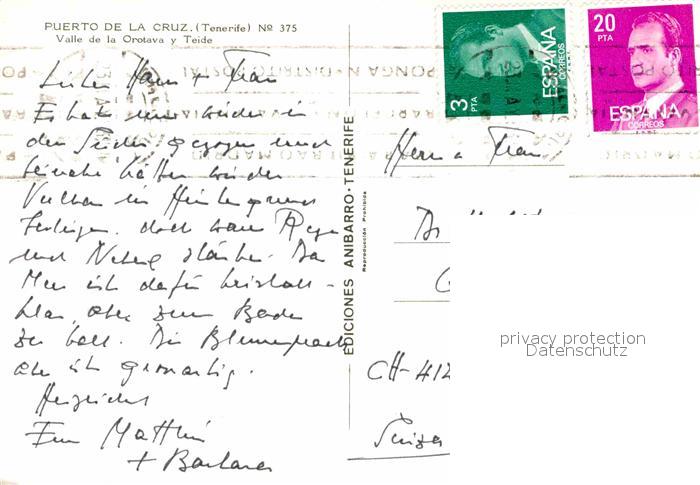 PUERTO DE LA CRUZ. (Tenerife) Nº 375
Valle de la Orotava y Teide
Lieber Hans + Frau
Es hat uns wieder in
den Süden gezogen und
beinahe hätten wir den
Vulkan im Hintergrund
doch waren Regen
und Nebel stärker. Das
Meer ist dafür kristall-
klar, aber zum Baden
zu kalt. Die Blumenpracht
aber ist grossartig.
Herzlichst
Euer Matthis
+ Barbara
EDICIONES ANIBARRO-TENERIFE
Reproducción Prohibida
3 PTA
ESPAÑA
CORREOS
20 PTA
ESPAÑA
CORREOS
PONGA Nº DISTRITO POSTAL
Herr u Frau
CH-412
Suiza
privacy protection
Datenschutz